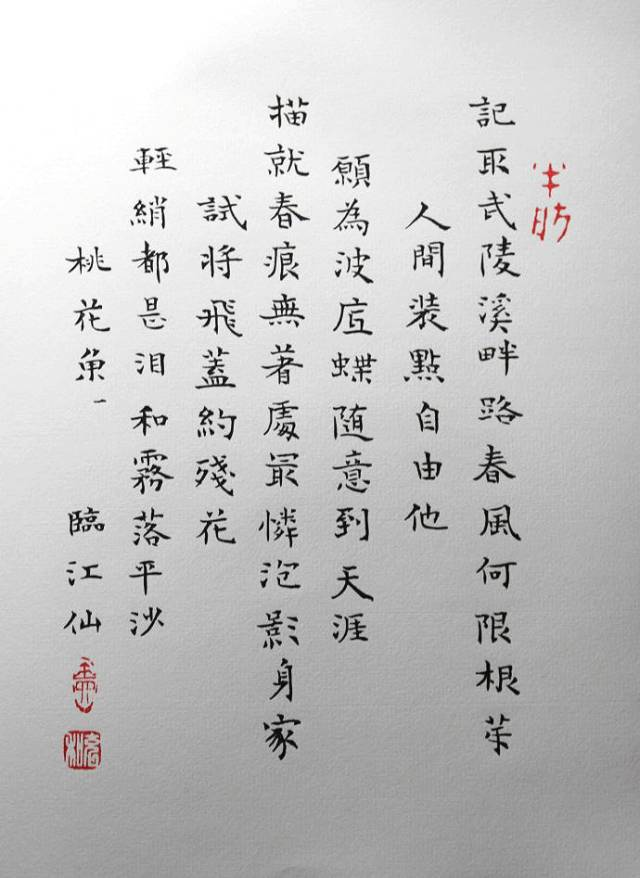 記取武陵溪畔路春風何限根芽
人間装點自由他
願為波底蝶随意到天涯
描就春痕無著處最憐泡影身家
試將飛蓋約殘花
輕綃都是淚和霧落平沙
桃花魚一 臨江仙